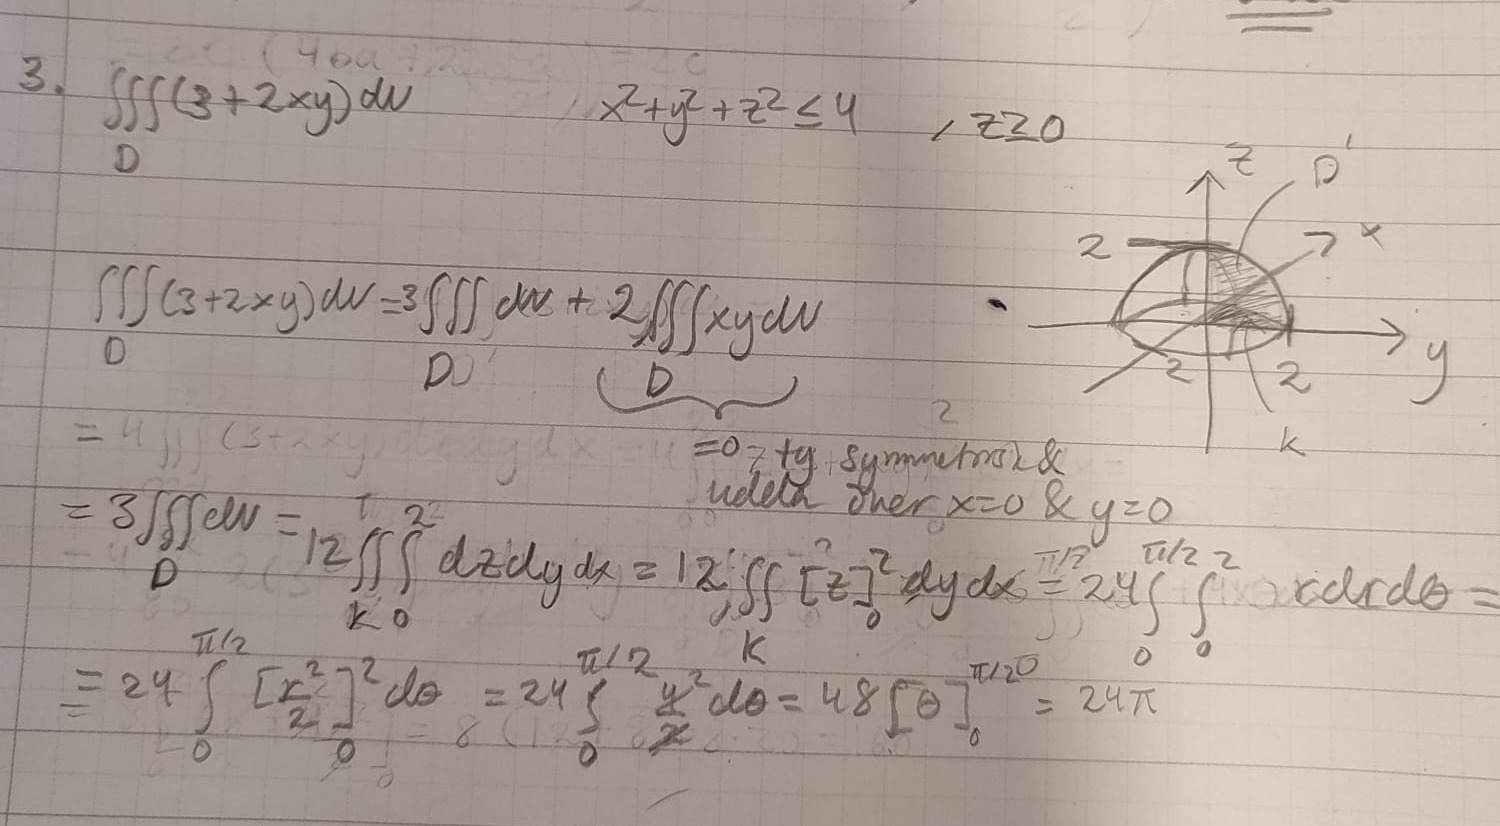 3. ∭(3+2xy)dv   x²+y²+z²≤4 , z≥0
D
z D'
2 x
∭(3+2xy)dv=3∭dv + 2∭xydv
D D D
2 2 y
K
=0 ty symmetrisk &
udda över x=0 & y=0
= 3∭dv = 12∬∫₀² dzdydx = 12∬[z]₀² dydx = 24∫₀^π/2 ∫₀² rdrdθ =
D K K
= 24∫₀^π/2 [r²/2]₀² dθ = 24∫₀^π/2 2dθ = 48[θ]₀^π/2 = 24π